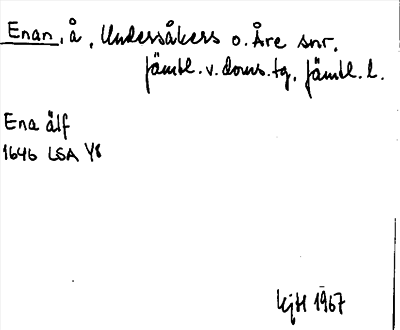 Enan, å, Undersåkers o. Åre snr,
Jämtl. v. doms. tg, Jämtl. l.
Ena älf
1646 LSA Y8
KjH 1967